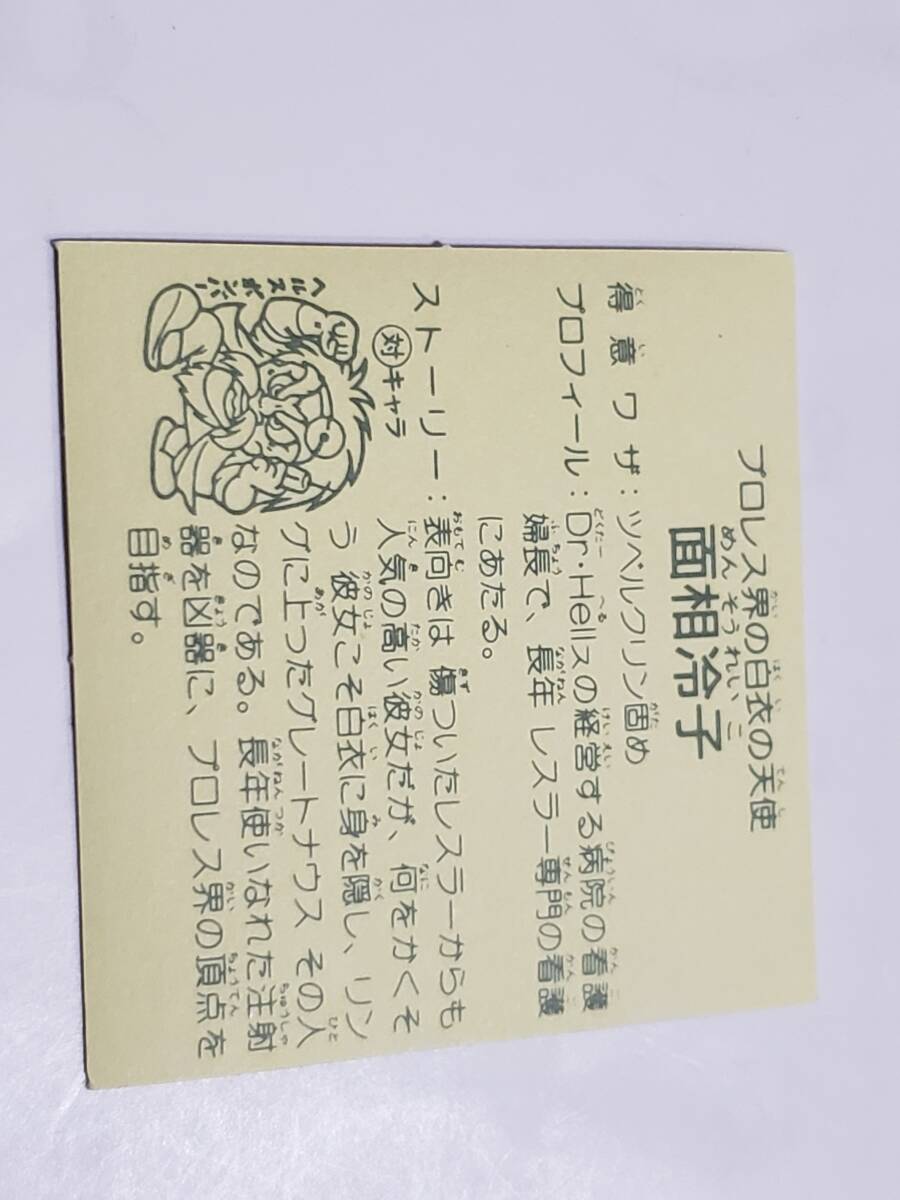 プロレス界の白衣の天使
面相冷子
得意ワザ：ツベルクリン固め
プロフィール：Dr・Hellスの経営する病院の看護
婦長で、長年 レスラー専門の看護
にあたる。
ストーリー：表向きは 傷ついたレスラーからも
人気の高い彼女だが、何をかくそ
う 彼女こそ白衣に身を隠し、リン
グに上ったグレートナウス その人
なのである。長年使いなれた注射
器を凶器に、プロレス界の頂点を
目指す。
対キャラ
ヘルスボンバー